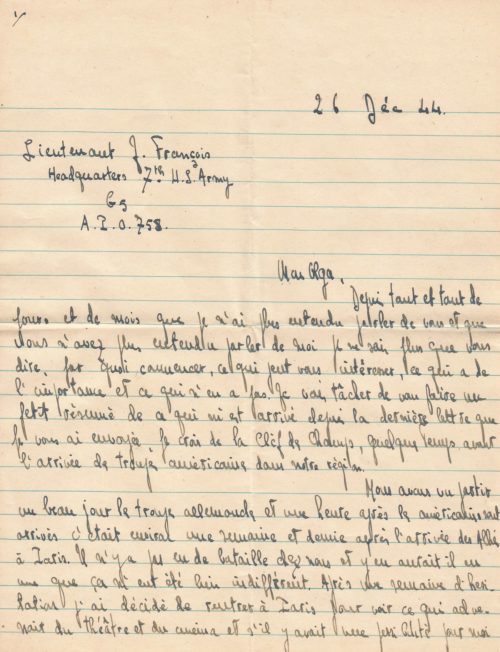 1/
26 Déc 44.
Lieutenant J. François
Headquarters 7th U.S. Army
G5
A.P.O. 758.
Mas Olga,
Depuis tant et tant de
jours et de mois que je n'ai plus entendu parler de vous et que
vous n'avez plus entendu parler de moi je ne sais plus que vous
dire, par quoi commencer, ce qui peut vous intéresser, ce qui a de
l'importance et ce qui n'en a pas. Je vais tâcher de vous faire un
petit résumé de ce qui m'est arrivé depuis la dernière lettre que
je vous ai envoyée, je crois de la Clef des Champs, quelques temps avant
l'arrivée des troupes américaines dans notre région.
Nous avons vu partir
un beau jour les troupes allemandes et une heure après les américains sont
arrivés c'était environ une semaine et demie après l'arrivée des Alliés
à Paris. Il n'y a pas eu de bataille chez nous et y en aurait-il eu
une que ça m'eut été bien indifférent. Après une semaine d'hési-
tation j'ai décidé de rentrer à Paris pour voir ce qui adve-
nait du théâtre et du cinéma et s'il y avait une possibilité pour moi